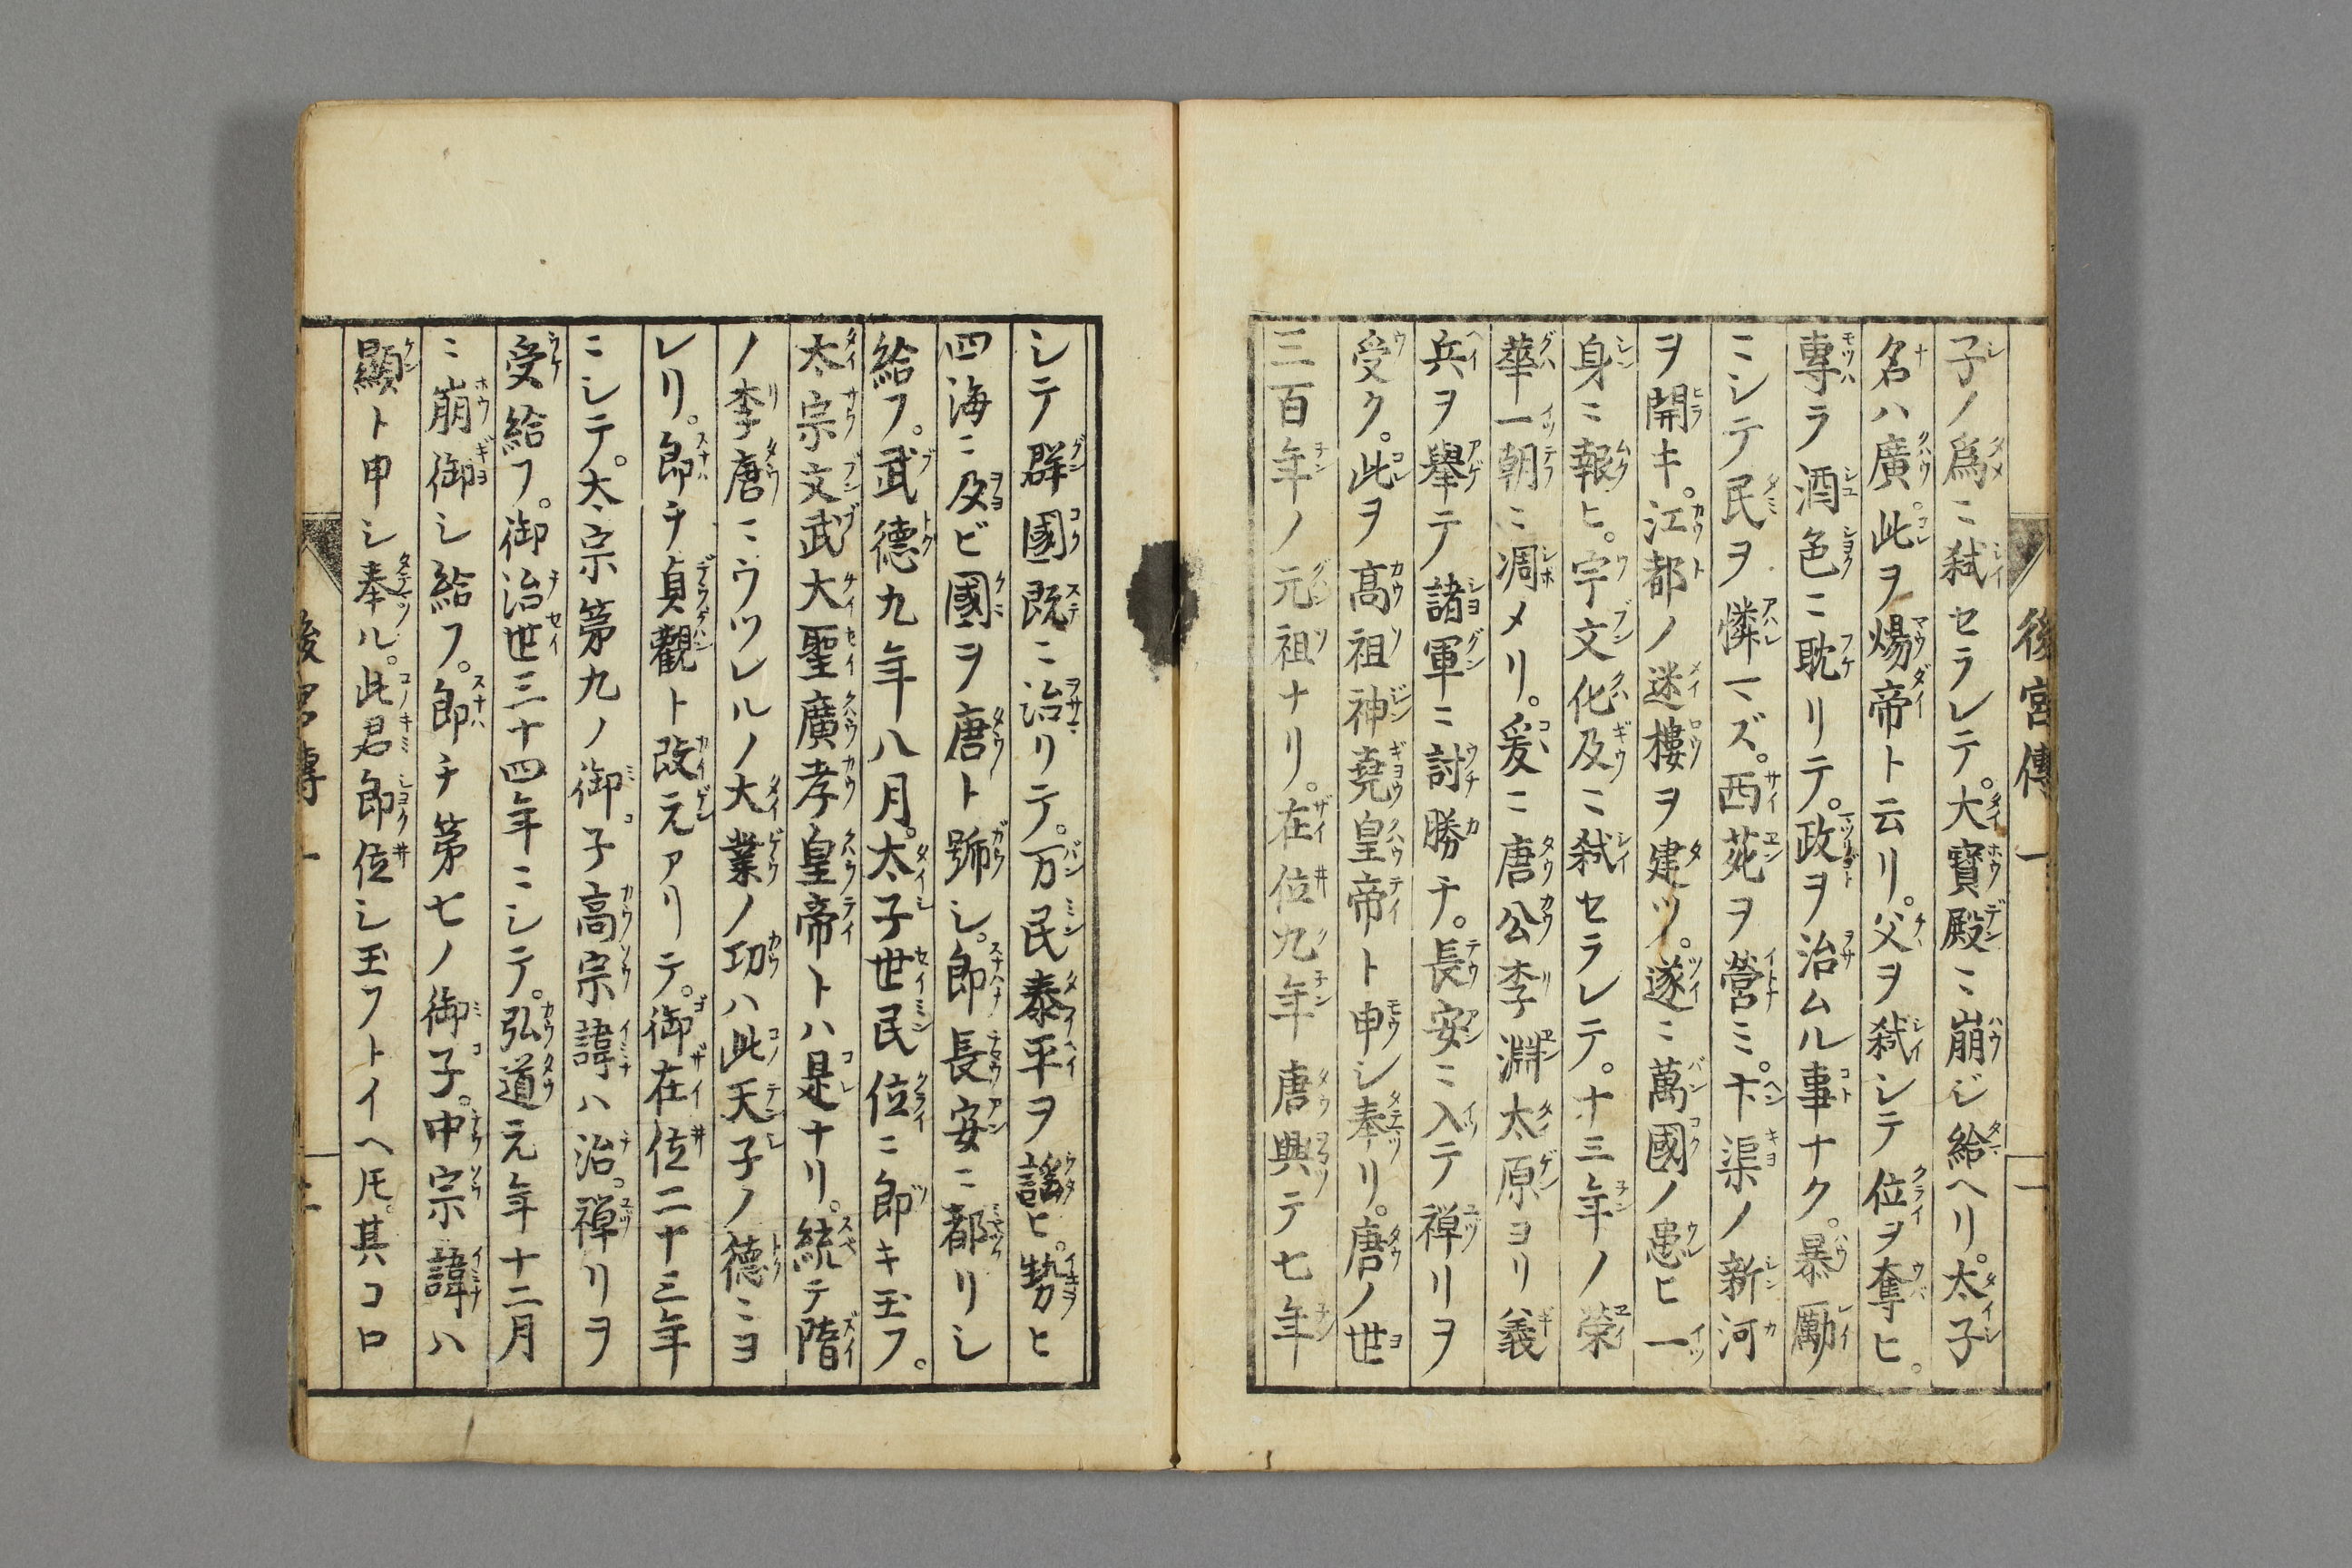 後宮傳 一
二
子ノ爲ニ弑セラレテ。大寳殿ニ崩ジ給ヘリ。太子
名ハ廣。此ヲ煬帝ト云リ。父ヲ弑シテ位ヲ奪ヒ。
專ラ酒色ニ耽リテ。政ヲ治ムル事ナク。暴勵
ニシテ民ヲ憐マズ。西苑ヲ營ミ。卞渠ノ新河
ヲ開キ。江都ノ迷樓ヲ建ツ。遂ニ萬國ノ患ヒ一
身ニ報ヒ。宇文化及ニ弑セラレテ。十三年ノ榮
華一朝ニ凋メリ。爰ニ唐公李淵太原ヨリ義
兵ヲ舉テ諸軍ニ討勝チ。長安ニ入テ禅リヲ
受ク。此ヲ高祖神堯皇帝ト申シ奉リ。唐ノ世
三百年ノ元祖ナリ。在位九年唐興テ七年
シテ群國既ニ治リテ。万民泰平ヲ謡ヒ。勢ヒ
四海ニ及ビ國ヲ唐ト號シ。即長安ニ都リシ
給フ。武德九年八月。太子世民位ニ即キ玉フ。
太宗文武大聖廣孝皇帝トハ是ナリ。統テ隋
ノ李唐ニウツレルノ大業ノ功ハ此天子ノ德ニヨ
レリ。即チ貞觀ト改元アリテ。御在位二十三年
ニシテ。太宗第九ノ御子高宗諱ハ治。禅リヲ
受給フ。御治世三十四年ニシテ。弘道元年十二月
ニ崩御シ給フ。即チ第七ノ御子。中宗諱ハ
顯ト申シ奉ル。此君即位シ玉フトイヘ𪜈。其コロ
後宮傳 一